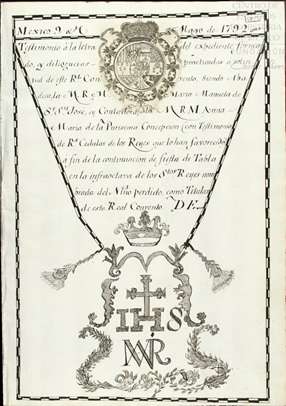 Mexico 9 de Mayo de 1792
Testimonio á la letra del expediente formado,
y diligencias practicadas á
tud de este Rl. Convento, siendo Aba
desa la M. R. M. Maria Manuela de
Sr. Sn. José, y Contadora la M. R. M. Anna
Maria de la Purisima Concepcion; con Testimonio
de Rs. Cedulas de los Reyes que lo han favorecido
á fin de la continuacion de fiesta de Tabla
en la infraoctava de los Stos. Reyes nom
brada del Niño perdido, como Titular
de este Real Convento. DE
IHS